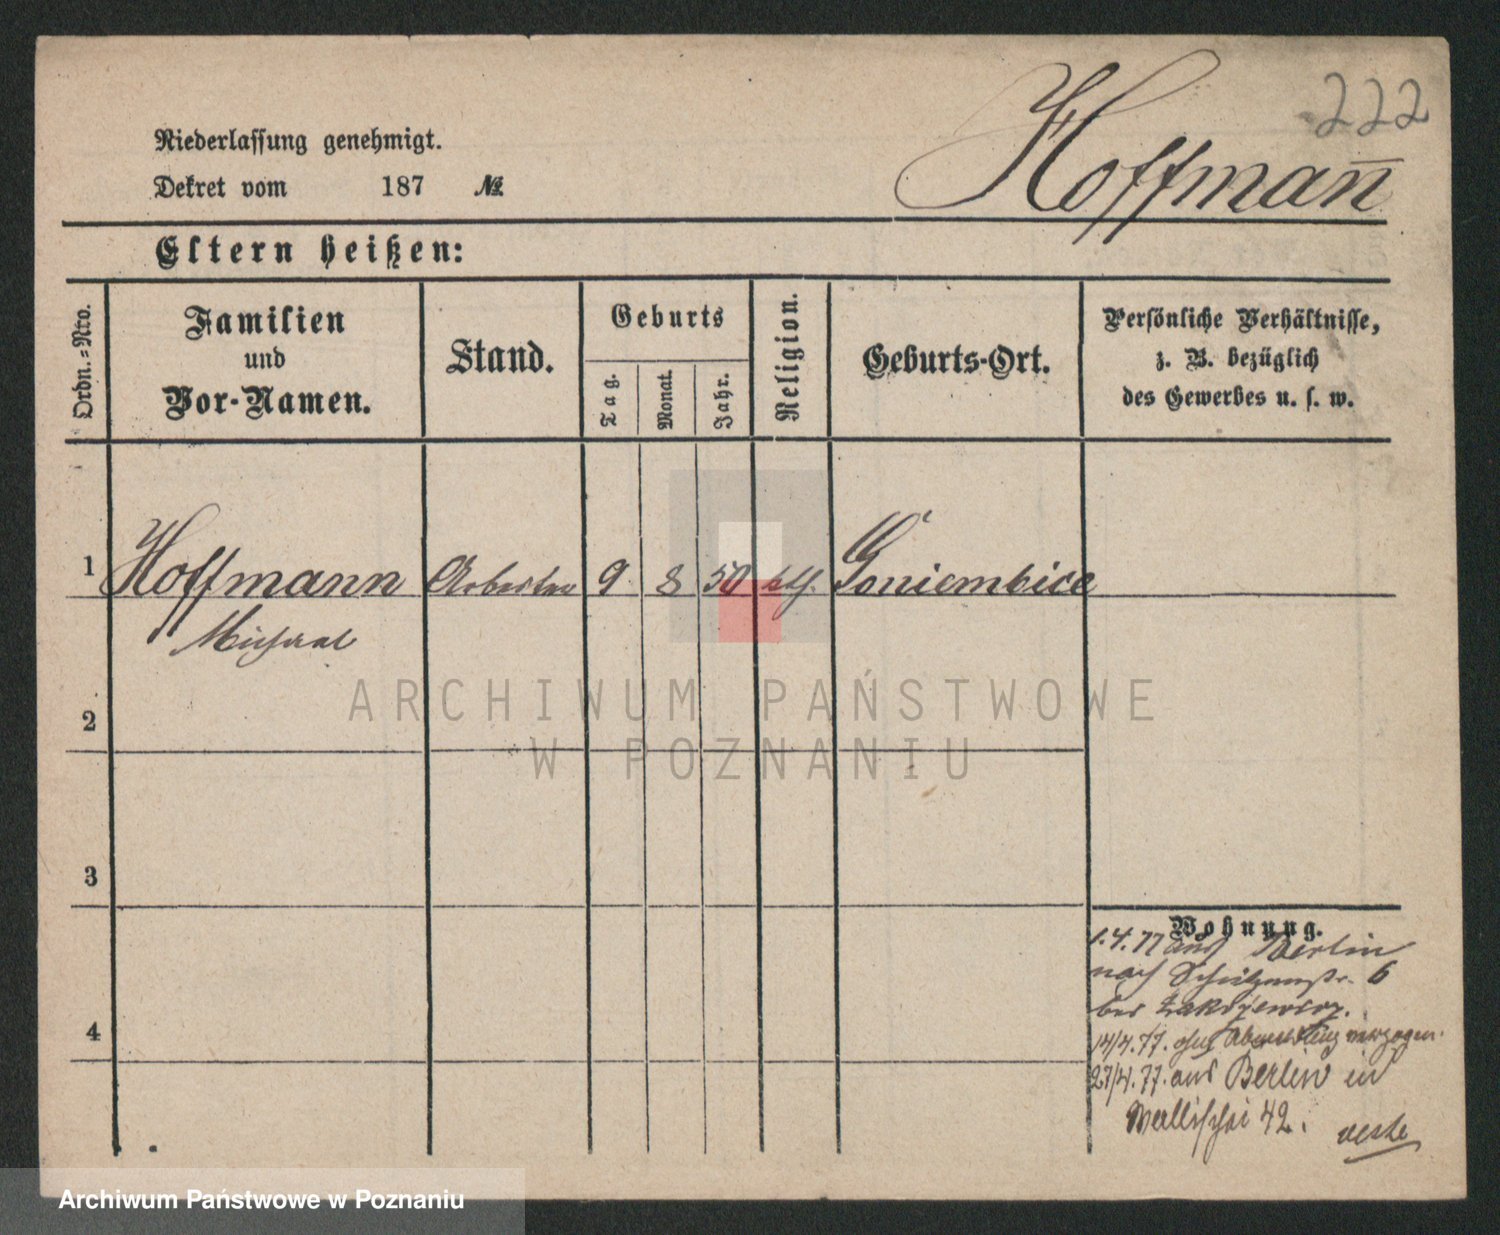 222
Hoffmañ
Niederlassung genehmigt.
Dekret vom 187 №
Eltern heißen:
Ordn.=Nro.
Familien
und
Vor-Namen.
Stand.
Geburts
Tag.
Monat.
Jahr.
Religion.
Geburts-Ort.
Persönliche Verhältnisse,
z. B. bezüglich
des Gewerbes u. s. w.
1 Hoffmann Arbeiter 9 8 50 kth. Goniembice
Michael
2
3
4
Wohnung.
1.4.77 aus Berlin
nach Schützenstr. 6
bei Zakrzewicz.
14/4.77. ohne Abmeldung verzogen.
27/4.77. aus Berlin in
Wallischei 42.
ARCHIWUM PAŃSTWOWE
W POZNANIU
Archiwum Państwowe w Poznaniu